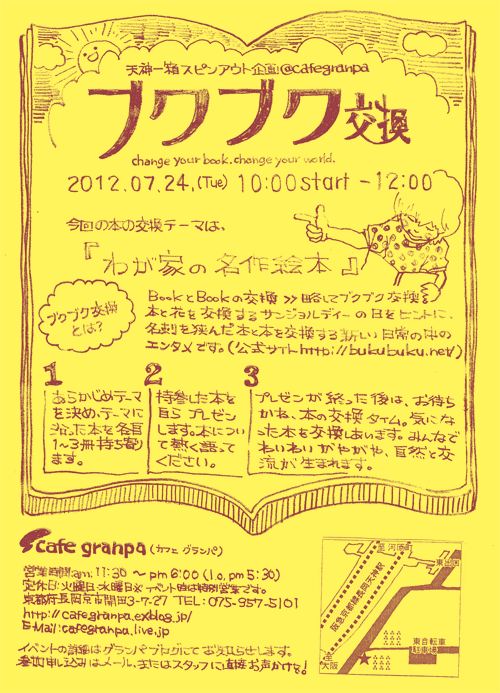 天神一箱スピンアウト企画@cafegranpa
ブクブク交換
change your book. change your world.
2012.07.24.(Tue) 10:00start -12:00
今回の本の交換テーマは、
『わが家の名作絵本』
ブクブク交換
とは?
BookとBookの交換≫略してブクブク交換。
本と花を交換するサンジョルディーの日をヒントに、
名刺を挟んだ本と本を交換する新しい日常の中の
エンタメです。(公式サイトhttp://bukubuku.net/)
1
あらかじめテーマ
を決め、テーマに
沿った本を各自
1〜3冊持ち寄り
ます。
2
持参した本を
自らプレゼン
します。本につい
て熱く語って
ください。
3
プレゼンが終った後は、お待ち
かね、本の交換タイム。気にな
った本を交換しあいます。みんなで
わいわいがやがや、自然と交
流が生まれます。
cafe granpa (カフェ グランパ)
営業時間:am.11:30 〜 pm6:00 (l.o.pm5:30)
定休日:火曜日・水曜日※イベント時は特別営業です。
京都府長岡京市開田3-7-27 TEL:075-957-5101
http://cafegranpa.exblog.jp/
E-Mail:cafegranpa.live.jp
イベントの詳細はグランパブログにてお知らせします。
参加申し込みはメール、またはスタッフに直接お声かけを!
至河原町
東出口
阪急京都線長岡天神駅
東自転車
駐車場
至
大阪